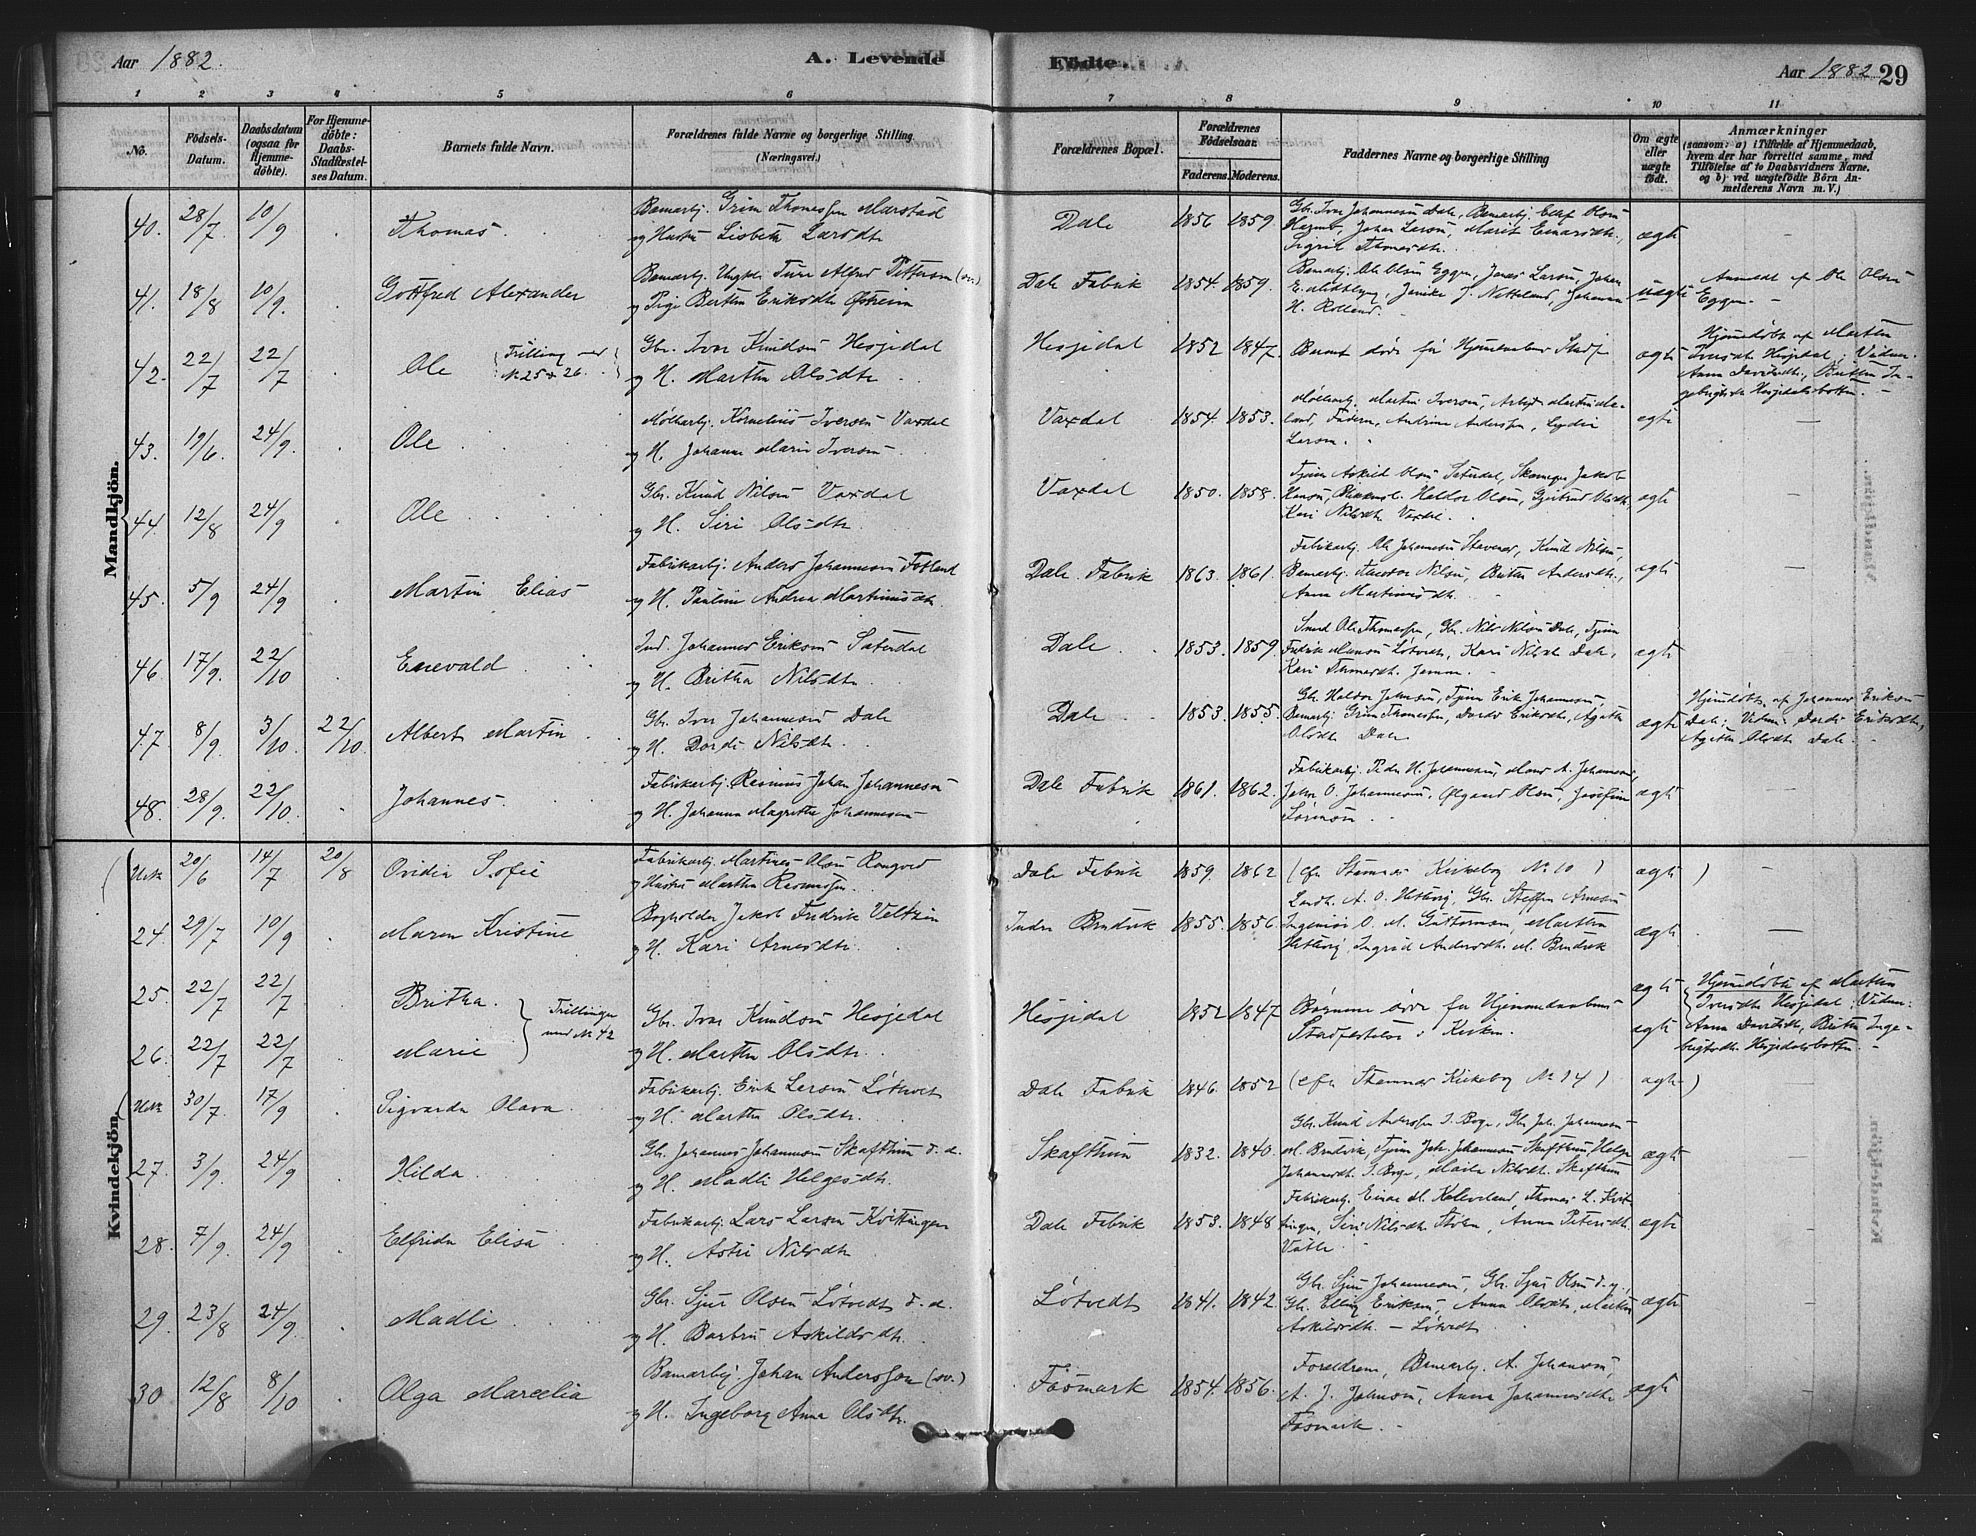 Aar 1882.
A. Levende
Födte.
Aar 1882
29
1 2 3 4 5 6 7 8 9 10 11
No.
Födsels-Datum.
Daabsdatum (ogsaa for Hjemme-döbte).
For Hjemme-döbte: Daabs-Stadfæstel-ses Datum.
Barnets fulde Navn.
Forældrenes fulde Navne og borgerlige Stilling. (Næringsvei.)
Forældrenes Bopæl.
Forældrenes Födselsaar.
Faderens. Moderens.
Faddernes Navne og borgerlige Stilling
Om ægte eller uægte födt.
Anmærkninger
(saasom: a) i Tilfælde af Hjemmedaab, hvem der har forrettet samme, med Tilföielse af to Daabsvidners Navne. og b) ved uægtefödte Börn An-melderens Navn m. V.)
Mandkjön.
40. 28/7 10/9 Thomas. Bamarbj. Grim Thomessen Marstad
og Hustru Lisbeth Larsdtr Dale 1856 1859 Gbr. Iver Johannesen Dale, Sigrid Thomasdtr. ægte –
41. 18/8 10/9. Gottfred Alexander Bamarbj. Ungkl. Ture Alfred Petterson (sv.)
og Pige Berthe Eriksdtr Dale Fabrik 1854. 1859. Bamarbj. Ole Olsen Eggen, Jonas Larsen, Johan uægte Anmeldt af Ole Olsen Eggen. –
42. 22/7 22/7 Ole (Trilling med № 25 & 26.) Gbr. Iver Knudsen Hesjedal
og H. Marthe Olsdtr. Hesjedal 1852 1847. Barnet døde før Hjemmedaabens Stadf. ægte Hjemdøbt af Marthe Iversdtr Hesjedal; Vidner: Anna Davidsdtr, Brithe In-gebrigtsdtr Hesjedalsbotten. –
43. 19/6 24/9. Ole Møllearbj. Kornelius Iversen Vaxdal
og H. Johanne Marie Iversen. Vaxdal 1854. 1853. Møllearbj. Martin Iversen, Faderen, Andrine Anderssen, Lydia Larsen. ægte –
44. 12/8 24/9 Ole Gbr. Knud Nilsen Vaxdal
og H. Siri Olsdtr. Vaxdal 1850. 1858. Tjener Askild Olsen Saterdal, Skomager Jakob Hansen, Haldor Olsen, Gjertrud Olsdtr, Kari Nilsdtr Vaxdal. ægte –
45. 5/9 24/9 Martin Elias Fabrikarbj. Anders Johannesen Fotland
og H. Pauline Andrea Martinusdtr. Dale Fabrik 1863. 1861. Fabrikarbj. Ole Johannesen Stavenes, Knud Nilsen, Bamarbj. Theodor Nilsen, Brithe Andersdtr., Anna Martinusdtr. ægte –
46. 17/9. 22/10 Enevald Ind. Johannes Eriksen Saterdal
og H. Britha Nilsdtr. Dale. 1853. 1859. Smed Ole Thomassen, Gbr. Nils Nilsen Dale, Tjener Fredrik Monsen Løtvedt, Kari Nilsdtr Dale, ægte
47. 8/9. 3/10. 22/10. Albert Martin Gbr. Iver Johannesen Dale
og H. Dordi Nilsdtr. Dale 1853. 1855. Gbr. Haldor Johnsen, Tjener Erik Johannesen, Bamarbj. Grim Thomessen, Dordi Eriksdtr, Agathe Olsdtr Dale ægte Hjemdøbt af Johannes Eriksen Dale; Vidner: Dordi Eriksdtr, Agathe Olsdtr Dale. –
48. 28/9. 22/10. Johannes. Fabrikarbj. Rasmus Johan Johannesen
og H. Johanna Magrethe Johannesen Dale Fabrik 1861. 1862. Fabrikarbj. Peder H. Johannesen, Mons A. Johannesen, John O. Johannesen, Olgaard Olsen, Josefine Sørensen. ægte –
Kvindekjön.
20/6 14/7 20/8 Ovidia Sofie Fabrikarbj. Martines Olsen Rongved
og Hustru Marthe Rasmussen. Dale Fabrik 1859. 1862 (cfr Stamnes Kirkebog № 10) ægte –
24. 29/7 10/9 Maren Kristine Bogholder Jakob Fredrik Veltzin
og H. Kari Arnesdtr. Indre Bruvik 1855. 1856. Gbr. Steffen Arnesen Ingeniør O. M. Guttormsen, Marthe Ingrid Andersdtr. M. Bruvik ægte –
25. 22/7 22/7 Britha.
26. 22/7 22/7 Marie Trillinger med № 42 Gbr. Iver Knudsen Hesjedal
og H. Marthe Olsdtr. Hesjedal 1852 1847 Børnene døde før Hjemmedaabens Stadfæstelse i Kirken. ægte ægte Hjemdøbt af Marthe Iversdtr Hesjedal; Vidner: Anna Davidsdtr, Brithe Inge-brigtsdtr Hesjedalsbotten. –
30/7. 17/9 Sigvarda Olava. Fabrikarbj. Erik Larsen Løtvedt
og H. Marthe Olsdtr. Dale Fabrik 1846. 1852 (cfr Stamnes Kirkebog № 14) ægte
27. 3/9. 24/9 Hilda Gbr. Johannes Johannesen Skafthun d. æ.
og H. Madli Helgesdtr. Skafthun 1832. 1840. Gbr. Knud Anderssen I. Boge, Gbr. Joh. Johannesen M. Bruvik, Tjener Joh. Johannesen Skafthun, Helga Johannesdtr. I. Boge, Marta Nilsdtr. Skafthun ægte –
28. 7/9. 24/9 Elfrida Elisa Fabrikarbj. Lars Larsen Kvittingen
og H. Astri Nilsdtr Dale Fabrik 1853. 1848 Fabrikarbj. Einar M. Kalleveland, Thomas L. Kvit-tingen, Siri Nilsdtr Stølen, Anna Petersdtr. Vatle. ægte –
29. 23/8 24/9. Madli Gbr. Sjur Olsen Løtvedt d. æ.
og H. Barbru Askildsdtr. Løtvedt 1841. 1842. Gbr. Sjur Johannesen, Gbr. Sjur Olsen d. y., Gbr. Elling Eriksen, Anna Olsdtr, Marthe Askildsdtr. – Løtvedt. ægte –
30 12/8 8/10 Olga Marcelia Bamarbj. Johan Anderssen (sv.)
og H. Ingeborg Anna Olsdtr. Fosmark 1854. 1856. Forældrene, Bamarbj. A. Johannesen, A. J. Johnsen, Anna Johannesdtr. Fosmark. – ægte –